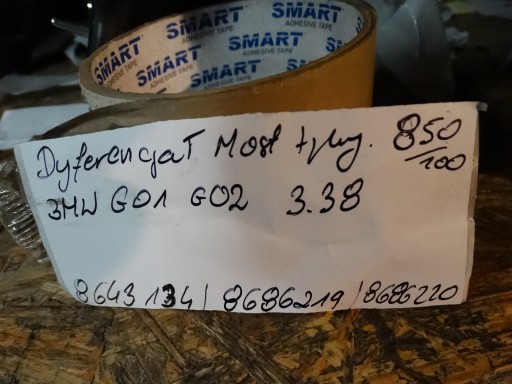 SMART
ADHESIVE TAPE
SMART
ADHESIVE TAPE
SMART
ADHESIVE TAPE
SMART
SMART
ADHESIVE TAPE
SMART
ADHESIVE TAPE
Dyferencjał Most tylny. 850/100
BMW G01 G02 3.38
8643134 / 8686219 / 8686220